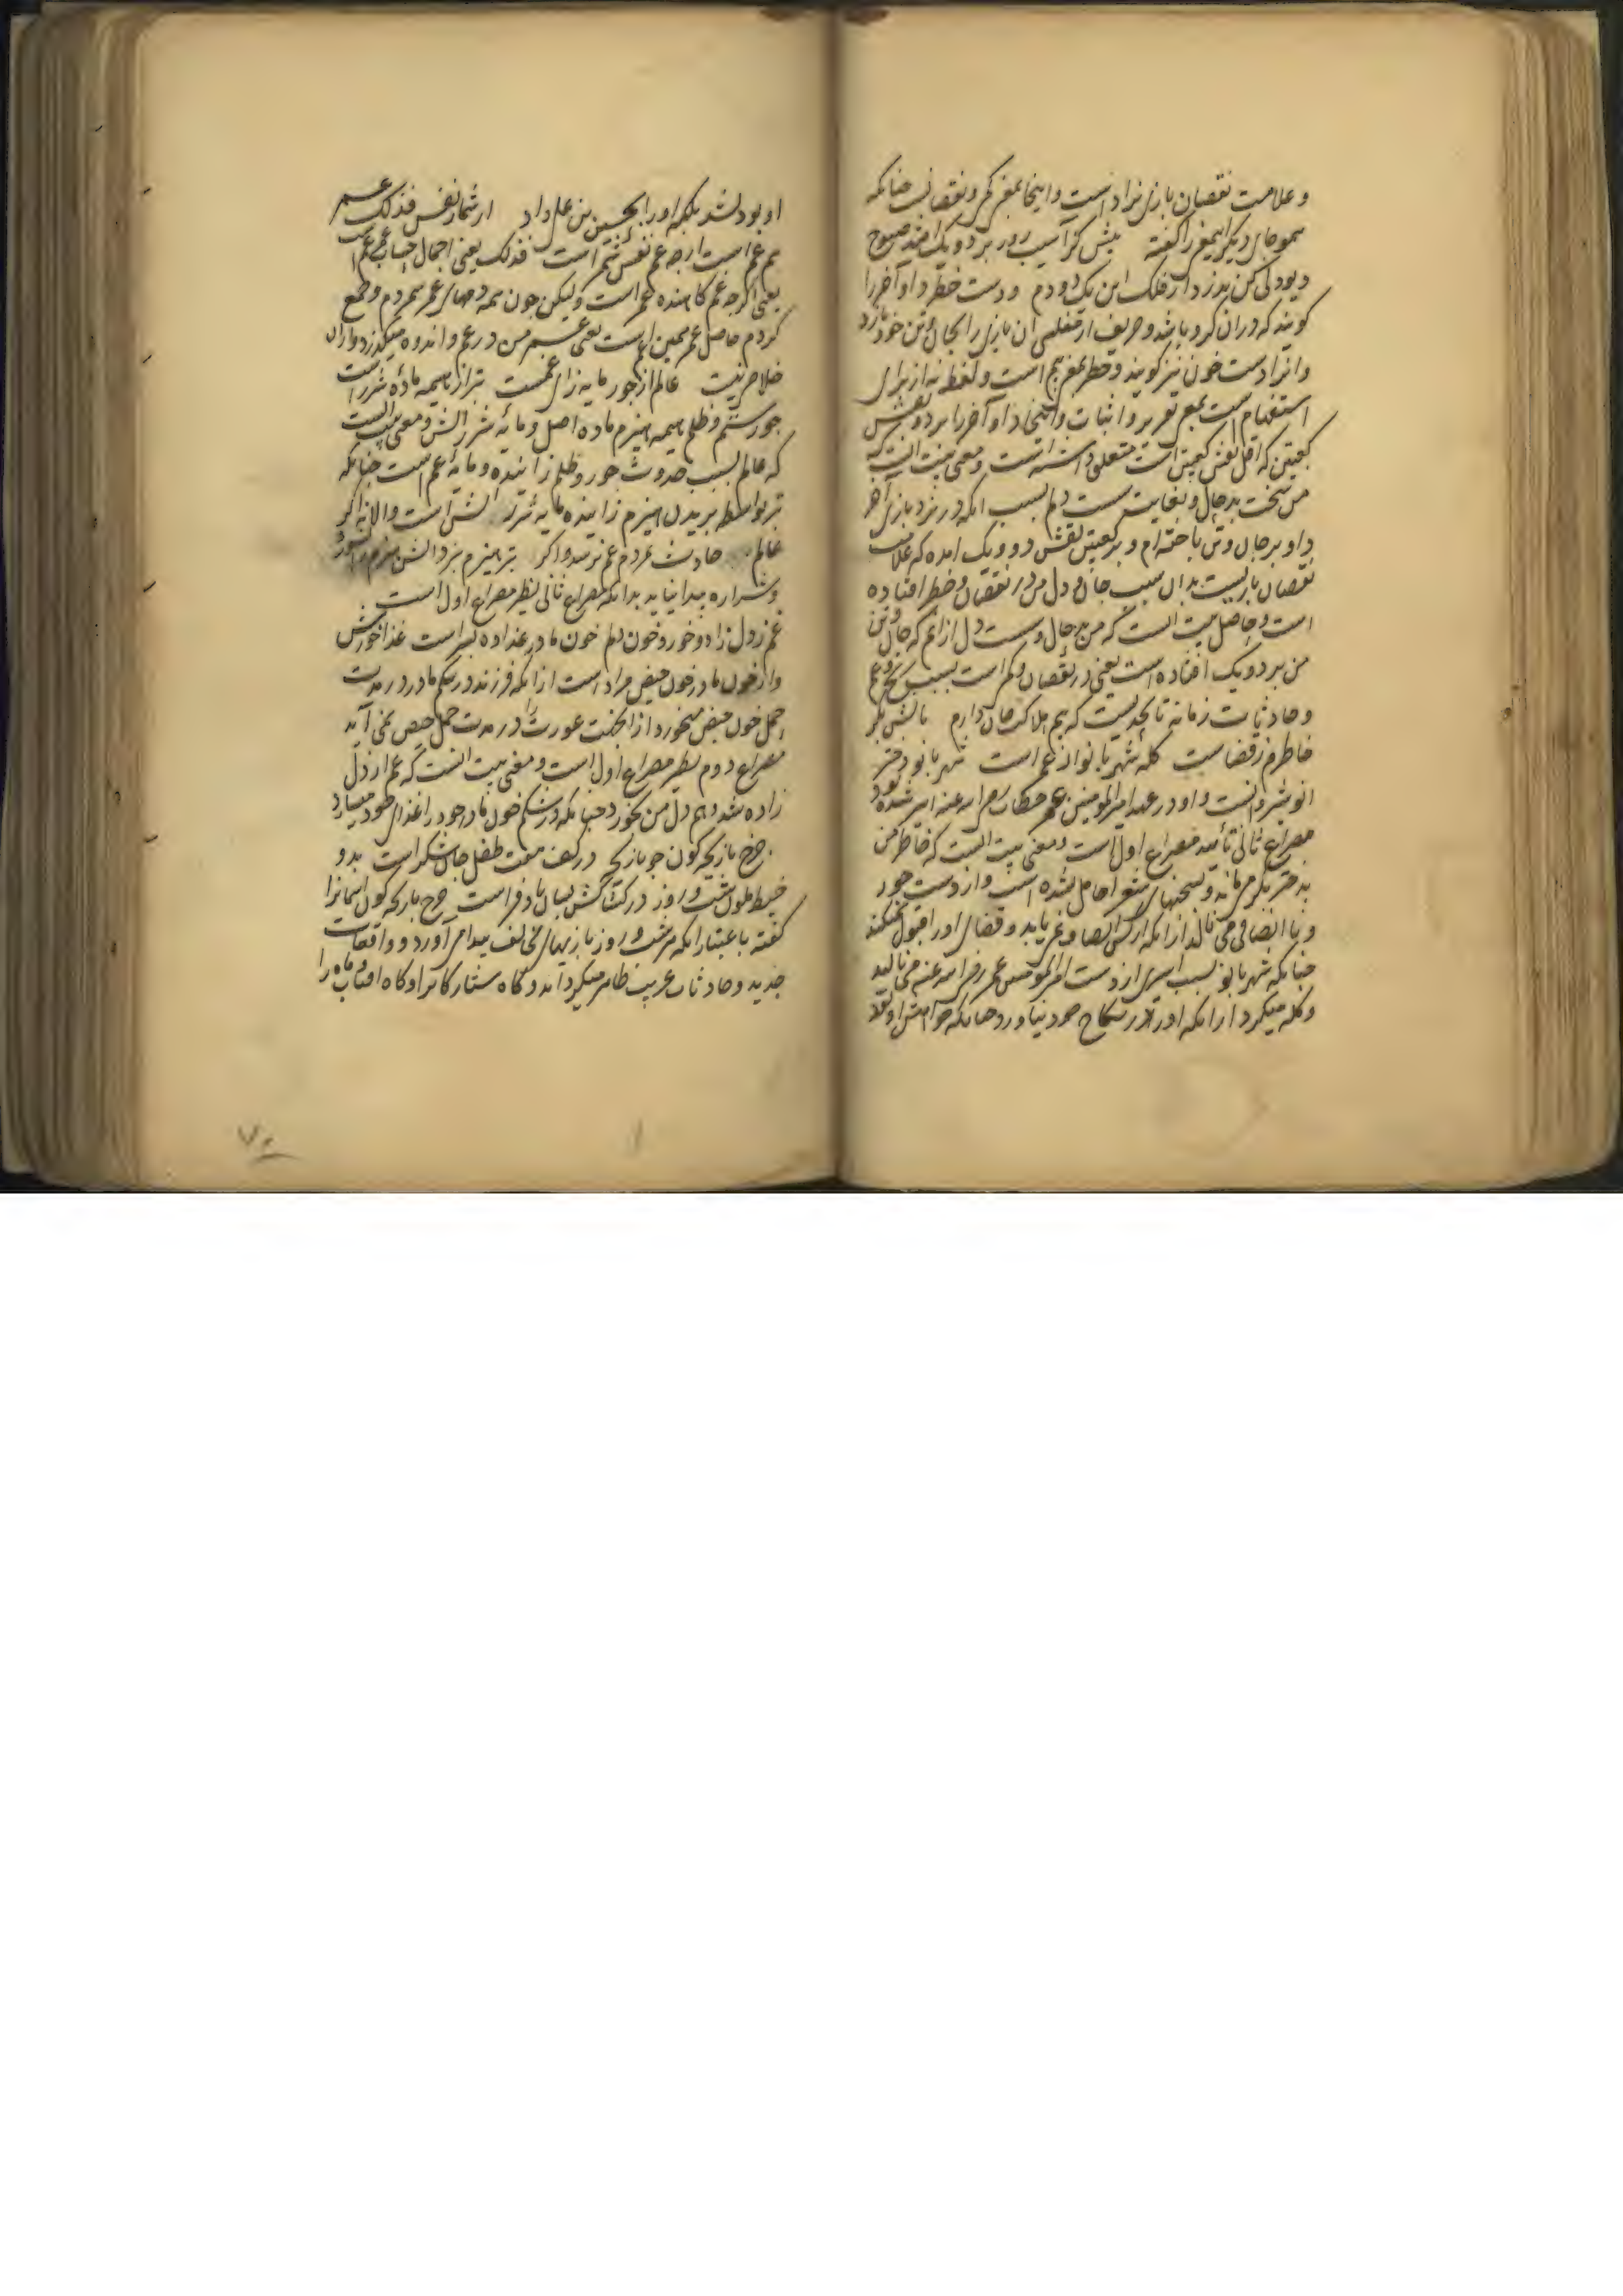 و علامت نقصان بازی نرد است و اینجا بمعنی کمی و نقصانی چنانکه
همو جای دیگر اینمعنی را گفته پیش کز آسیب روز بر دو یک افتد صبوح
کویند که در آن کرو باشد و حریف از مفلسی آن بازی را بجان و تن خود بازد
و انرا دست خون نیز کویند و خطر بمعنی بیم است و لفظ نه از برای
استفهام است بمعنی تقریر و اثبات و اینجا داو آخر را بر دو نقش
کعبتین که اقل نقش کعبتین است متعلق داشته است و معنی بیت انست که
من سخت بدحال و بغایت سست دلم بسبب انکه در نرد بازی آخر
داو بر جان و تن باخته ام و بر کعبتین نقش دو و یک امده که علامت
نقصان بازیست بدان سبب جان و دل من در نقصان و خطر افتاده
است و حاصل بیت انست که من بدحال و سست دل ازانم که جان و تن
من بر دو یک افتاده است یعنی در نقصان و کم است بسبب رنج و غم
و حادثات زمانه تا بحدیست که بیم هلاکت جان دارم نالش بکر
خاطرم ز قضاست کله شهربانو از عمر است شهربانو دختر
انوشیروانست و او در عهد امیرالمومنین عمر خطاب رضی الله عنه اسیر شده بود
مصراع ثانی تأیید مصراع اول است و معنی بیت انست که خاطر من
و نا انصافی می نالد ازانکه از کس انصاف نمی یابد و قضا او را قبول نمیکند
چنانکه شهربانو بسبب اسیری از دست امیرالمومنین عمر رضی الله عنه می نالید
و کله میکرد ازانکه او را در نکاح خود نیاورد چنانکه خواهش او بود
او بود نشد بلکه او را بحسین بن علی داد از شمار نفس فذلک عمر
هم غم است ارچه غم نفس شمر است فذلک یعنی اجمال حساب عمر غم است
یعنی اکرچه غم کاهنده عمر است ولیکن چون همه دمهای عمر شمردم و جمع
کردم حاصل عمر همین غم است یعنی عمر من در غم و اندوه میکذرد و ازان
خلاص نیست عالم از جور مایه زای غمست تبر از هیمه ماده شرر است
جور ستم و ظلم هیمه هیزم ماده اصل و مایه شرر آتش و معنی بیت انست
که عالم بسبب حدوث جور و ظلم زاینده و مایه غم است چنانکه
تبر بواسطه بریدن هیزم زاینده مایه شرر آتش است والا نه اکر
عالم حادث نمردم غم نرسد و اکر تبر هیزم نبرد آتش هیزم را نسوزد
و شراره پیدا نیاید بدانکه مصراع ثانی نظیر مصراع اول است
غم ز دل زاد و خورد خون دلم خون مادر غذاده پسر است غذا خورش
و از خون مادر خون حیض مراد است ازانکه فرزند در شکم مادر در مدت
حمل خون حیض میخورد ازینجهت عورت را در مدت حمل حیض نمی آید
مصراع دوم نظیر مصراع اول است و معنی بیت انست که غم از دل
زاده شد و هم دل من بخورد چنانکه در شکم خون مادر خود را غذای خود میسازد
چرخ بازیچه کون چو بازیچه در کف هفت طفل جان شکر است بدو
خیط ملون شب و روز در کشاکش بسان بادفر است چرخ بازیچه کون اسمانرا
کفته باعتبار انکه هر شب و روز بازیهای مخالف پیدا می آورد و واقعات
جدید و حادثات غریب ظاهر میکرداند و کاه ستارکانرا و کاه افتاب و ماه را